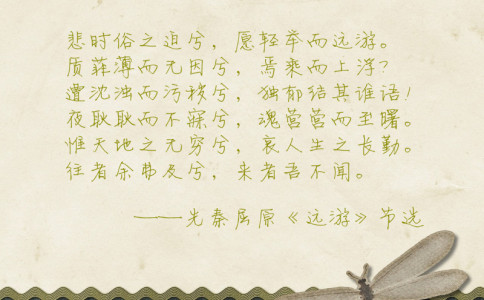 悲时俗之迫兮，愿轻举而远游。
质菲薄而无因兮，焉乘而上浮？
遭沈浊而污秽兮，独郁结其谁语！
夜耿耿而不寐兮，魂营营而至曙。
惟天地之无穷兮，哀人生之长勤。
往者余弗及兮，来者吾不闻。
——先秦屈原《远游》节选